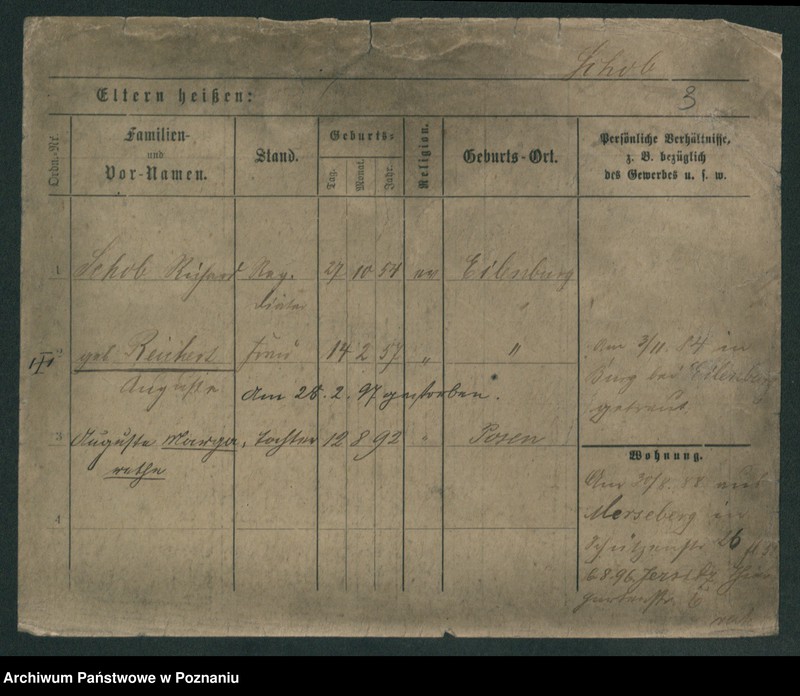 Schob
3
Eltern heißen:
Ordn.-Nr.
Familien-
und
Vor-Namen.
Stand.
Geburts-
Tag.
Monat.
Jahr.
Religion.
Geburts-Ort.
Persönliche Verhältnisse,
z. B. bezüglich
des Gewerbes u. s. w.
1 Schob Richard Reg. 27 10 54 ev Eilenburg
Diätar "
2 geb. Reichert Frau 14 2 57 " "
Auguste
Am 28. 2. 97 gestorben.
3 Auguste Marga- Tochter 12 8 92 " Posen
rethe
4
Am 3/11. 84 in
Burg bei Eilenburg
getraut.
Wohnung.
Merseberg in
Schützenstr 26
6.8.96
gartenstr. 6
Archiwum Państwowe w Poznaniu